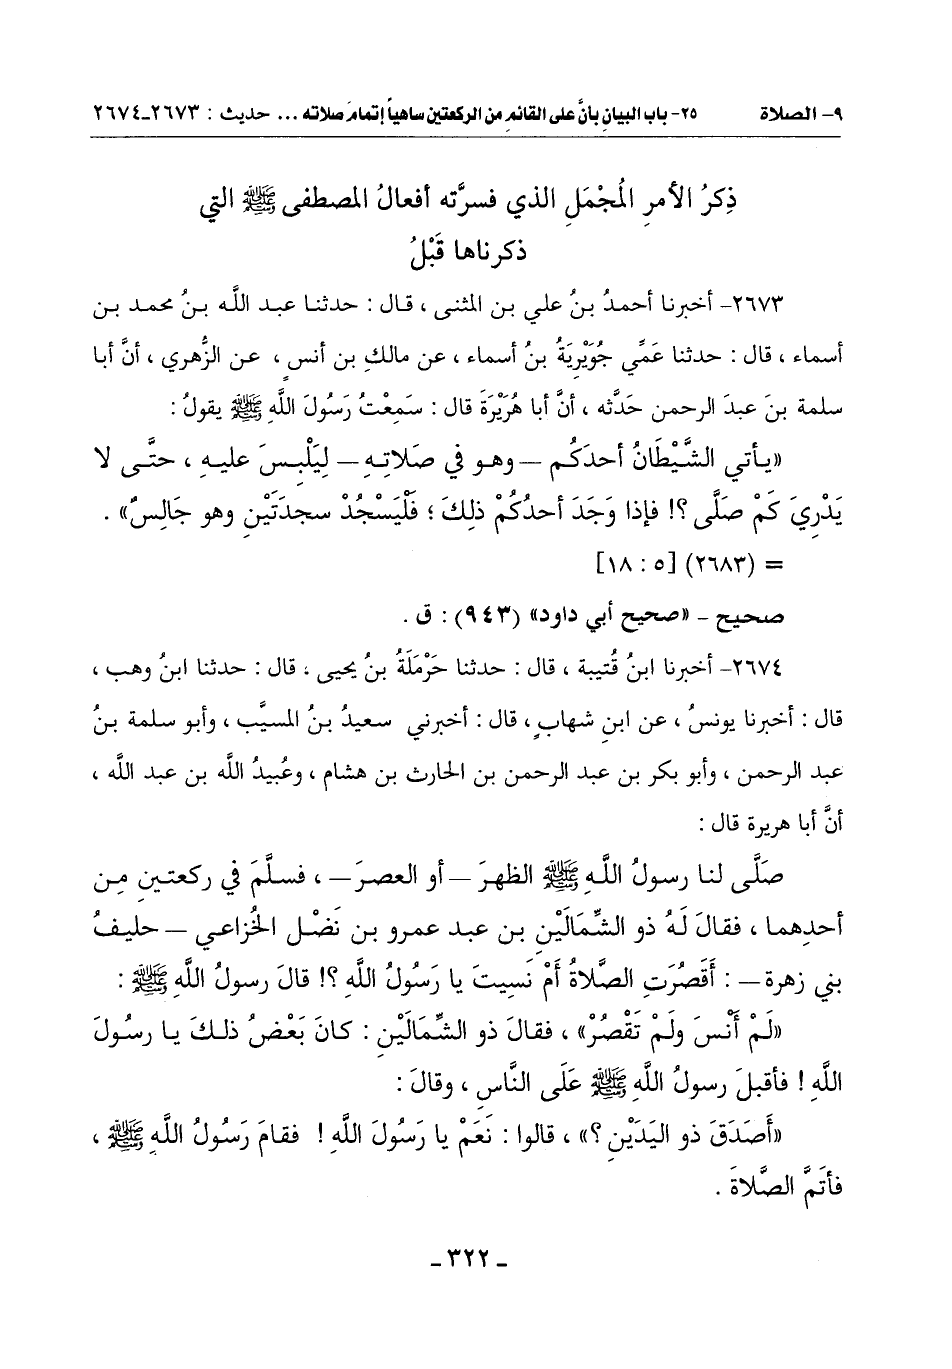 ٩- الصلاة ٢٥- باب البيانِ بأنَّ على القائمِ من الركعتين ساهياً إتمامَ صلاته ... حديث : ٢٦٧٣-٢٦٧٤
ذِكرُ الأمرِ المُجْمَلِ الذي فسرَّته أفعالُ المصطفى ﷺ التي
ذكرناها قَبْلُ
٢٦٧٣- أخبرنا أحمدُ بنُ علي بن المثنى ، قال : حدثنا عبد اللَّه بنُ محمد بن
أسماء ، قال : حدثنا عَمِّي جُوَيْرِيَةُ بنُ أسماء ، عن مالكِ بن أنسٍ ، عن الزُّهري ، أنَّ أبا
سلمة بنَ عبدَ الرحمن حَدَّثه ، أنَّ أبا هُرَيْرَةَ قال : سَمِعْتُ رَسُولَ اللَّهِ ﷺ يقولُ :
«يأتي الشَّيْطَانُ أحدَكُم ــ وهو في صَلاتِهِ ــ لِيَلْبِسَ عليهِ ، حتَّى لا
يَدْرِيَ كَمْ صَلَّى ؟! فإذا وَجَدَ أحدُكُمْ ذلِكَ ؛ فَلْيَسْجُدْ سجدَتَيْنِ وهو جَالِسٌ» .
= (٢٦٨٣) [٥ : ١٨]
صحيح - «صحيح أبي داود» (٩٤٣) : ق .
٢٦٧٤- أخبرنا ابنُ قُتيبة ، قال : حدثنا حَرْمَلَةُ بنُ يحيى ، قال : حدثنا ابنُ وهب ،
قال : أخبرنا يونسُ ، عن ابنِ شهابٍ ، قال : أخبرني سعيدُ بنُ المسيَّب ، وأبو سلمة بنُ
عبد الرحمن ، وأبو بكر بن عبد الرحمن بن الحارث بن هشام ، وعُبيدُ اللَّه بن عبد اللَّه ،
أنَّ أبا هريرة قال :
صَلَّى لنا رسولُ اللَّهِ ﷺ الظهرَ ــ أو العصرَ ــ ، فسلَّمَ في ركعتينِ مِن
أحدِهما ، فقالَ لَهُ ذو الشِّمَالَيْنِ بن عبد عمرو بن نَضْل الخُزاعي ــ حليفُ
بني زهرة ــ : أَقَصُرَتِ الصَّلاةُ أمْ نَسِيتَ يا رَسُولُ اللَّهِ ؟! قالَ رسولُ اللَّهِ ﷺ :
«لَمْ أَنْسَ ولَمْ تَقْصُرْ» ، فقالَ ذو الشِّمَالَيْنِ : كانَ بَعْضُ ذلكَ يا رسُولَ
اللَّهِ ! فأقبلَ رسولُ اللَّهِ ﷺ عَلَى النَّاسِ ، وقالَ :
«أَصَدَقَ ذو اليَدَيْنِ ؟» ، قالوا : نَعَمْ يا رَسُولَ اللَّهِ ! فقامَ رَسُولُ اللَّهِ ﷺ ،
فأتَمَّ الصَّلاةَ .
- ٣٢٢ -